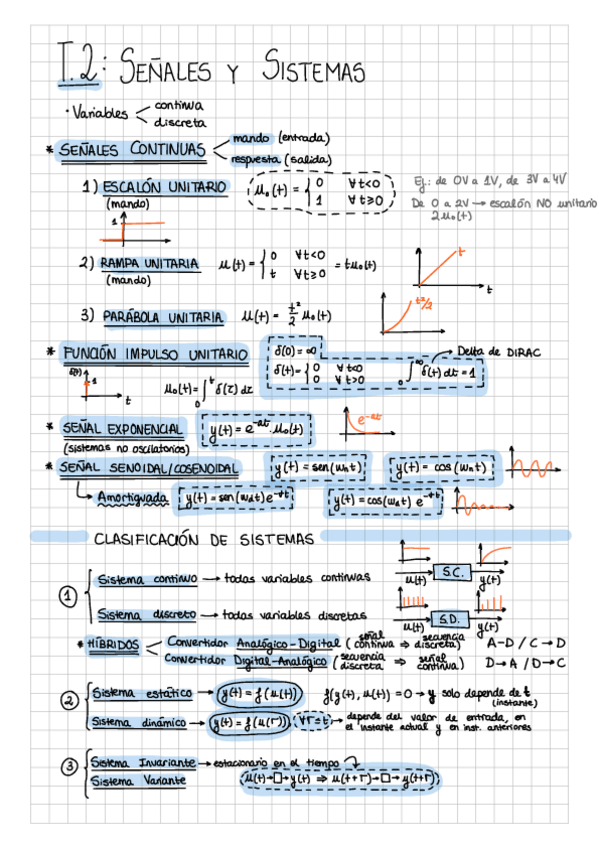 T.2: SEÑALES Y SISTEMAS
· Variables < continua
discreta
* SEÑALES CONTINUAS < mando (entrada)
respuesta (salida)
1) ESCALÓN UNITARIO
(mando)
μ₀(t) = { 0 ∀t<0
1 ∀t≥0
Ej.: de 0V a 1V, de 3V a 4V
De 0 a 2V → escalón NO unitario
2μ₀(t)
1
t
2) RAMPA UNITARIA
(mando)
μ(t) = { 0 ∀t<0
t ∀t≥0
= tμ₀(t)
t
t
3) PARÁBOLA UNITARIA μ(t) = t²/2 μ₀(t)
t²/2
* FUNCIÓN IMPULSO UNITARIO
δ(0) = ∞
δ(t) = { 0 ∀ t<0
0 ∀ t>0
∫₀^∞ δ(t) dt = 1
→ Delta de DIRAC
δ(t)
1
t
μ₀(t) = ∫₀^t δ(τ) dτ
* SEÑAL EXPONENCIAL
(sistemas no oscilatorios)
y(t) = e^-at · μ₀(t)
e^-at
* SEÑAL SENOIDAL/COSENOIDAL y(t) = sen(ωₙt) y(t) = cos(ωₙt)
→ Amortiguada y(t) = sen(ωdt)e^-σt y(t) = cos(ωdt) e^-σt
CLASIFICACIÓN DE SISTEMAS
① { Sistema continuo → todas variables continuas
μ(t) S.C. y(t)
Sistema discreto → todas variables discretas
μ(t) S.D. y(t)
* HÍBRIDOS < Convertidor Analógico-Digital (señal continua ⇒ secuencia discreta) A-D / C→D
Convertidor Digital-Analógico (secuencia discreta ⇒ señal continua) D→A / D→C
② { Sistema estático → y(t) = f(μ(t)) f(y(t), μ(t)) = 0 → y solo depende de t
(instante)
Sistema dinámico → y(t) = f(μ(τ)) ∀τ≤t → depende del valor de entrada, en
el instante actual y en inst. anteriores
③ { Sistema Invariante → estacionario en el tiempo
Sistema Variante
μ(t)→□→y(t) ⇒ μ(t+τ)→□→y(t+τ)